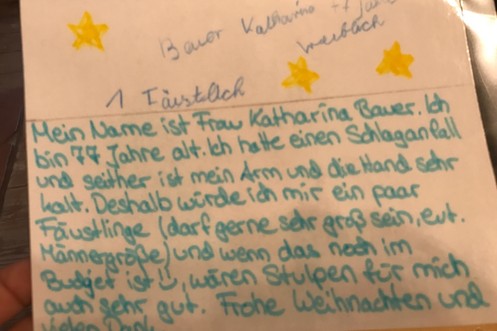 Bauer Katharina 77 Jahre
weiblich
1 Fäustlich
Mein Name ist Frau Katharina Bauer. Ich
bin 77 Jahre alt. Ich hatte einen Schlaganfall
und seither ist mein Arm und die Hand sehr
kalt. Deshalb würde ich mir ein paar
Fäustlinge (darf gerne sehr groß sein, evt.
Männergröße) und wenn das noch im
Budget ist, wären Stulpen für mich
auch sehr gut. Frohe Weihnachten und
vielen Dank